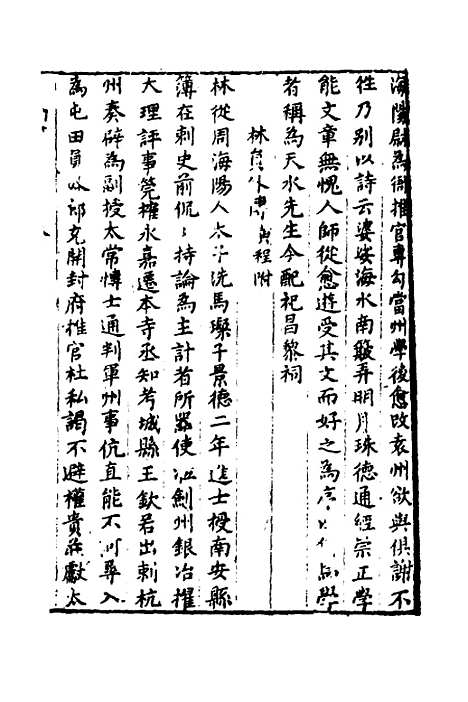 海陽尉為衙推官專勾當州學後愈改袁州欲與俱謝不
性乃別以詩云婆娑海水南簸弄明月珠德通經宗正學
能文章無愧人師從愈遊受其文而好之為序學
者稱為天水先生今配祀昌黎祠
林員外程附
林從周海陽人太子洗馬璨子景德二年進士授南安縣
簿在刺史前侃侃持論為主計者所器使涖劍州銀冶擢
大理評事筦榷永嘉遷本寺丞知考城縣王欽若出刺杭
州奏辟為副授太常博士通判軍州事伉直能不阿尋入
為屯田員外郎充開封府推官杜私謁不避權貴莊獻太